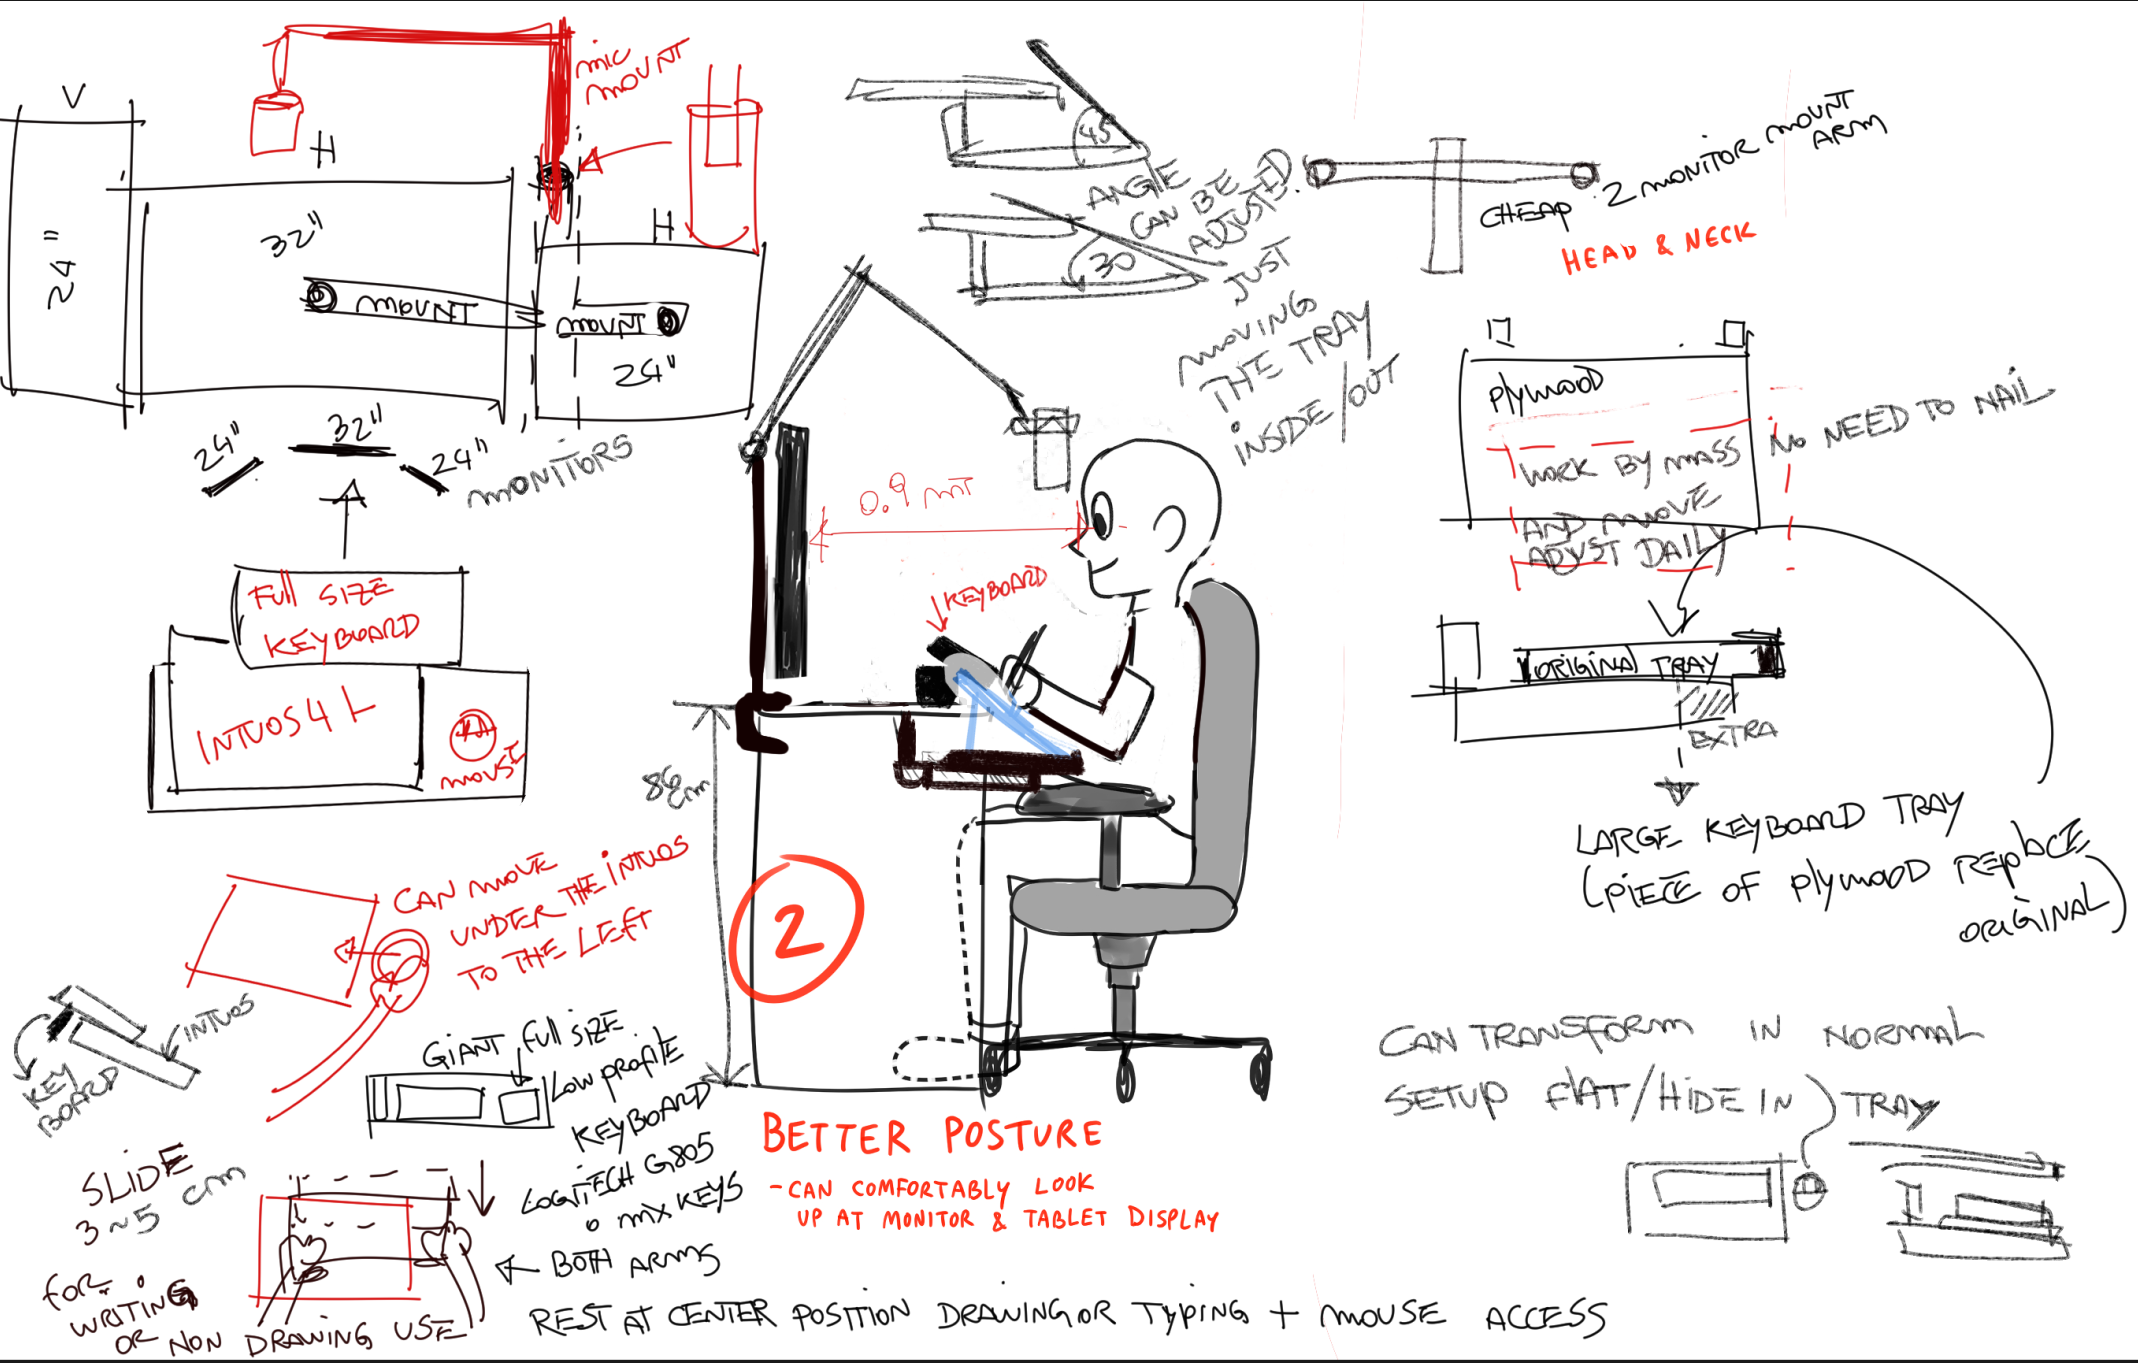 V
24"
H
32"
MOUNT
MIC
MOUNT
H
MOUNT
24"
24"
32"
24"
MONITORS
FULL SIZE
KEYBOARD
INTUOS4 L
MOUSE
CAN MOVE
UNDER THE INTUOS
TO THE LEFT
INTUOS
KEY
BOARD
GIANT FULL SIZE
LOW PROFILE
KEYBOARD
LOGITECH G805
O MX KEYS
SLIDE
3~5 cm
FOR
WRITING
OR NON DRAWING USE
BOTH ARMS
REST AT CENTER POSITION DRAWING OR TYPING + MOUSE ACCESS
45
30
ANGLE
CAN BE
ADJUSTED
JUST
MOVING
THE TRAY
INSIDE/OUT
0.9 MT
KEYBOARD
86 cm
2
BETTER POSTURE
- CAN COMFORTABLY LOOK
UP AT MONITOR & TABLET DISPLAY
CHEAP 2 MONITOR MOUNT
ARM
HEAD & NECK
PLYWOOD
NO NEED TO NAIL
WORK BY MASS
AND MOVE
ADJUST DAILY
ORIGINAL TRAY
EXTRA
LARGE KEYBOARD TRAY
(PIECE OF PLYWOOD REPLACE
ORIGINAL)
CAN TRANSFORM IN NORMAL
SETUP FLAT/HIDE IN TRAY